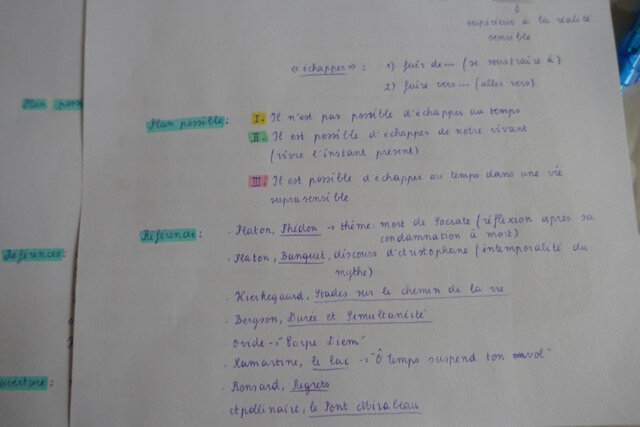 supérieur à la réalité
sensible
« échapper » : 1) fuir de... (se soustraire à)
2) fuire vers... (aller vers)
Plan possible : I. Il n'est pas possible d'échapper au temps
II. Il est possible d'échapper de notre vivant
(vivre l'instant présent)
III. Il est possible d'échapper au temps dans une vie
suprasensible
Références : . Platon, Phédon → thème: mort de Socrate (réflexion après sa
condamnation à mort)
. Platon, Banquet, discours d'Aristophane (intemporalité du
mythe)
. Kierkegaard, Stades sur le chemin de la vie
. Bergson, Durée et Simultanéité
. Ovide → "Carpe Diem"
. Lamartine, le lac → "Ô temps suspend ton envol"
. Ronsard, Regrets
. Apollinaire, le Pont Mirabeau
Plan poss
Références :
uverture :